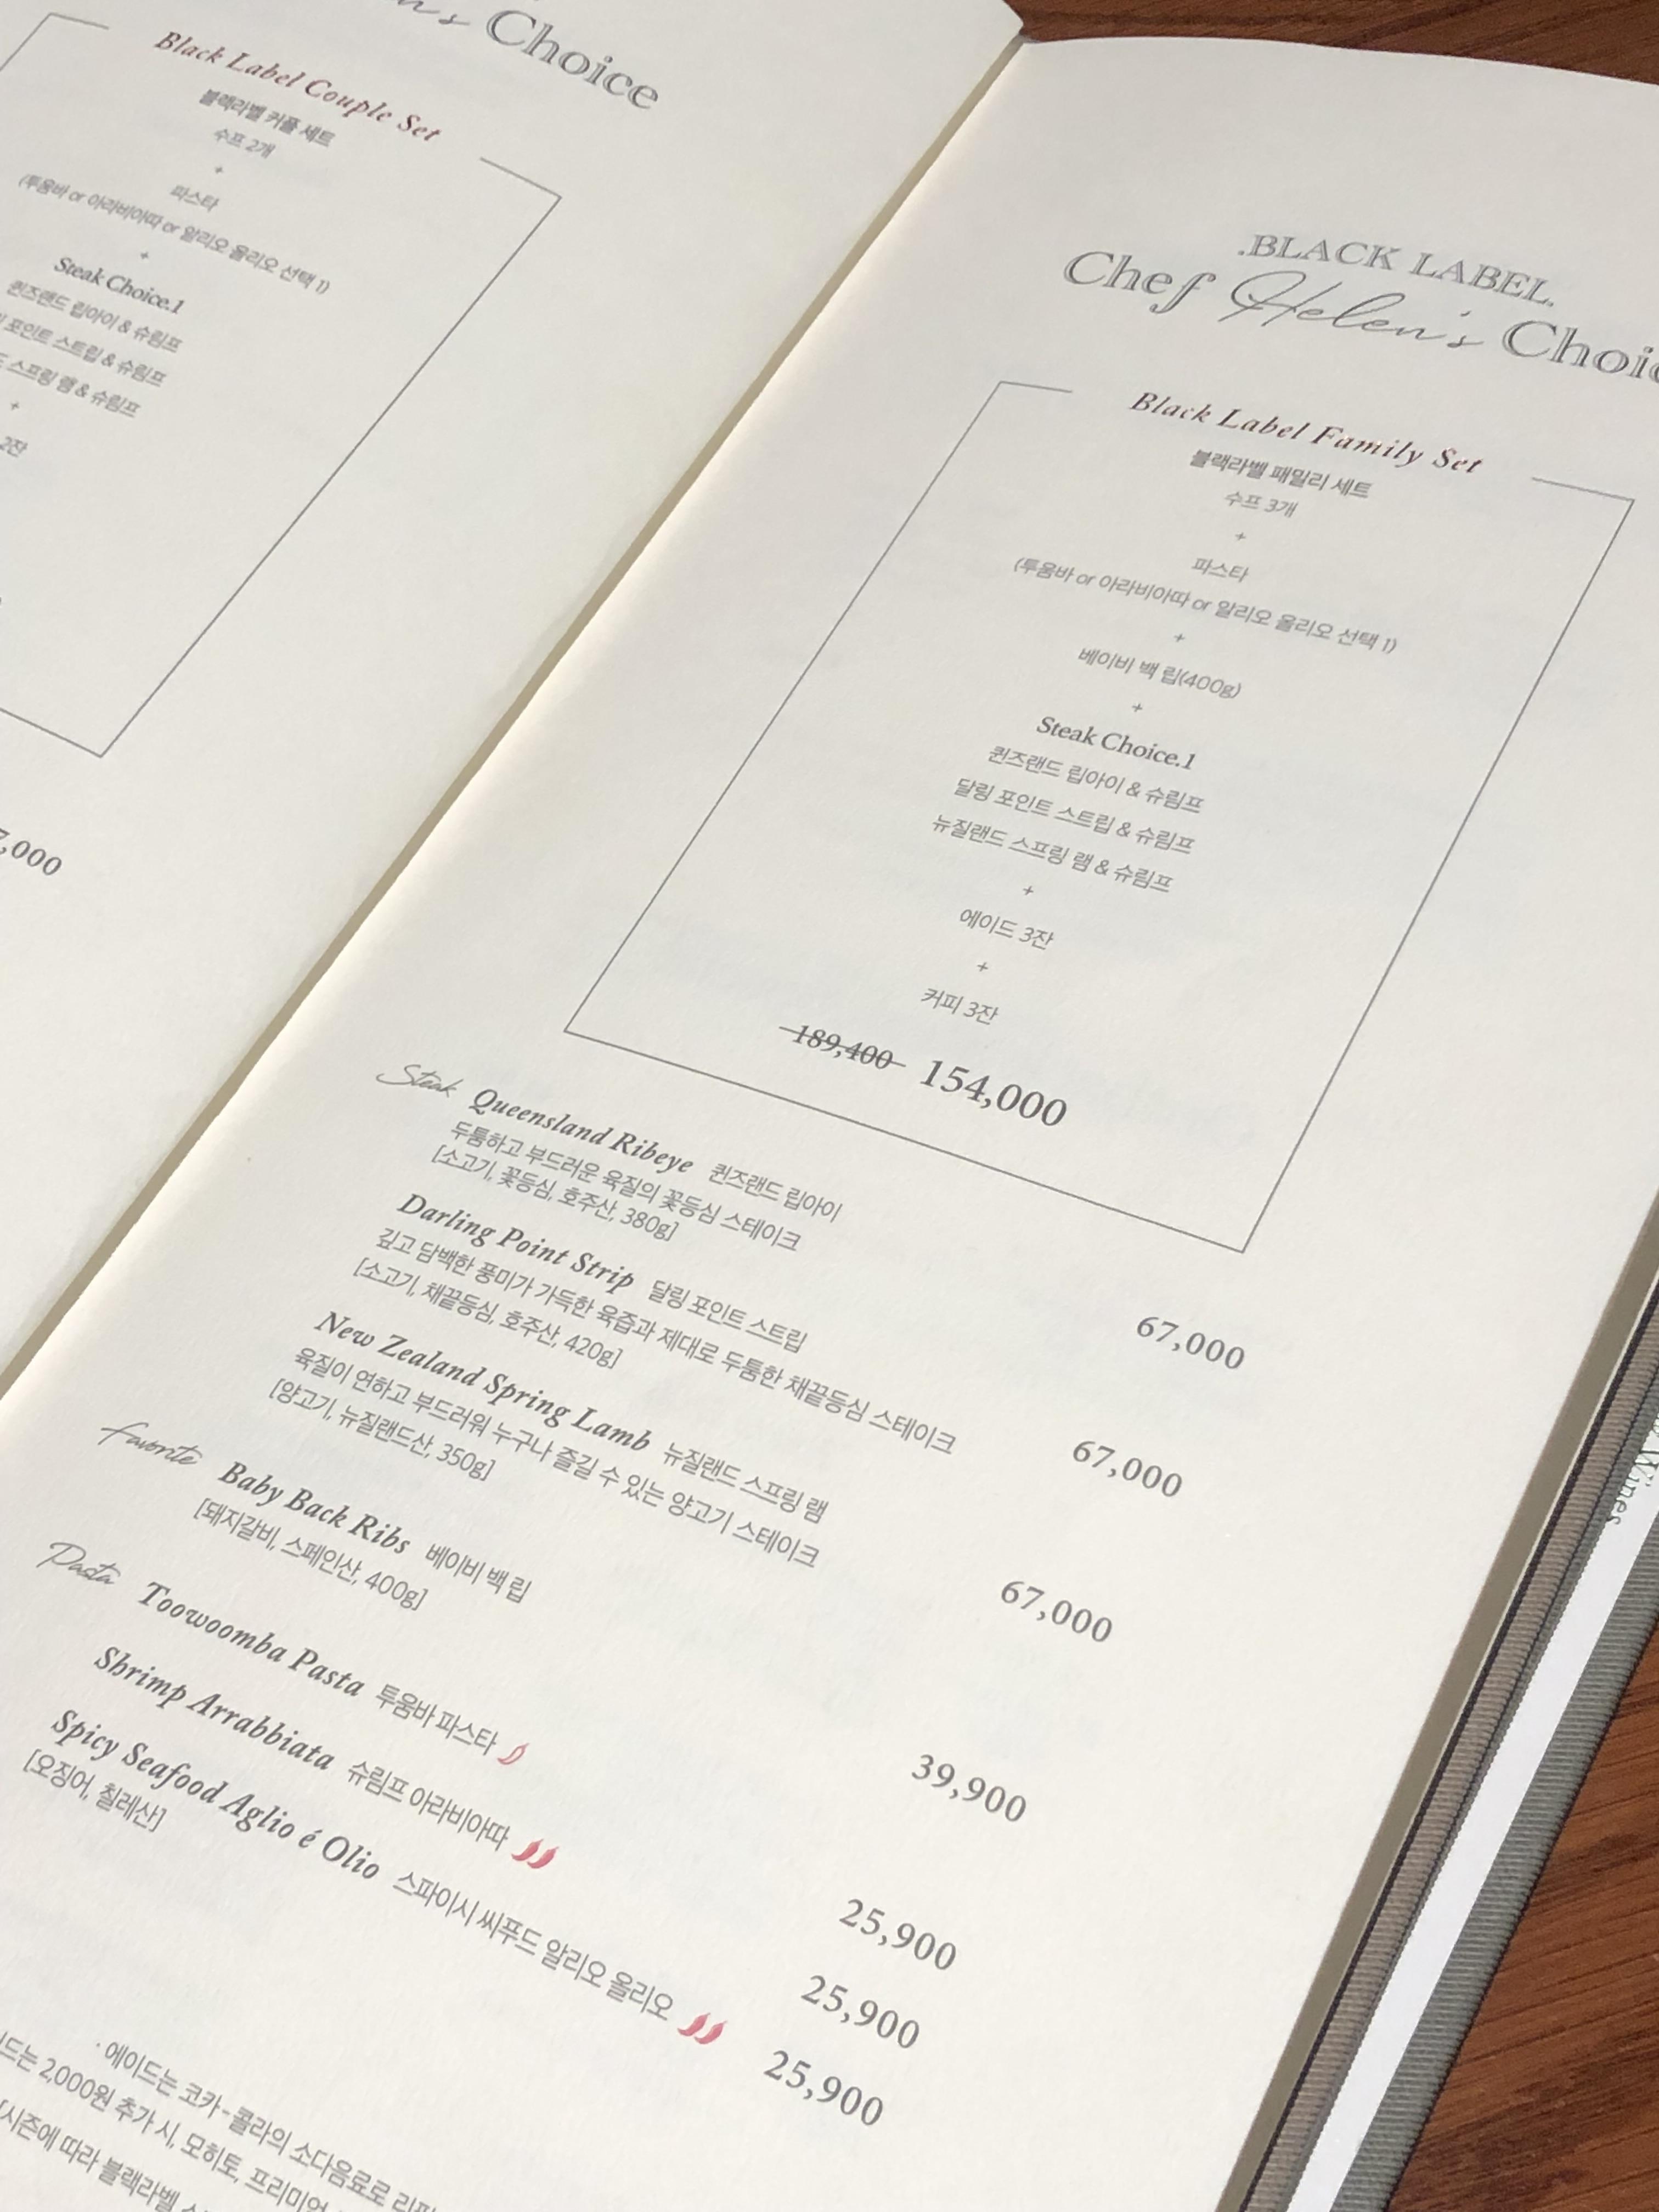 Choice
Black Label Couple Set
블랙라벨 커플 세트
수프 2개
+
파스타
(투움바 or 아라비아따 or 알리오 올리오 선택 1)
+
Steak Choice.1
퀸즈랜드 립아이 & 슈림프
포인트 스트립 & 슈림프
스프링 램 & 슈림프
+
2잔
,000
.BLACK LABEL.
Chef Helen's Choic
Black Label Family Set
블랙라벨 패밀리 세트
수프 3개
+
파스타
(투움바 or 아라비아따 or 알리오 올리오 선택 1)
+
베이비 백 립(400g)
+
Steak Choice.1
퀸즈랜드 립아이 & 슈림프
달링 포인트 스트립 & 슈림프
뉴질랜드 스프링 램 & 슈림프
+
에이드 3잔
+
커피 3잔
189,400 154,000
Steak Queensland Ribeye 퀸즈랜드 립아이 67,000
두툼하고 부드러운 육질의 꽃등심 스테이크
[소고기, 꽃등심, 호주산, 380g]
Darling Point Strip 달링 포인트 스트립 67,000
깊고 담백한 풍미가 가득한 육즙과 제대로 두툼한 채끝등심 스테이크
[소고기, 채끝등심, 호주산, 420g]
New Zealand Spring Lamb 뉴질랜드 스프링 램 67,000
육질이 연하고 부드러워 누구나 즐길 수 있는 양고기 스테이크
[양고기, 뉴질랜드산, 350g]
Favorite Baby Back Ribs 베이비 백 립 39,900
[돼지갈비, 스페인산, 400g]
Pasta Toowoomba Pasta 투움바 파스타 25,900
Shrimp Arrabbiata 슈림프 아라비아따 25,900
Spicy Seafood Aglio é Olio 스파이시 씨푸드 알리오 올리오 25,900
[오징어, 칠레산]
· 에이드는 코카-콜라의 소다음료로
드는 2,000원 추가 시, 모히토, 프리미엄
시즌에 따라 블랙라벨
Wines